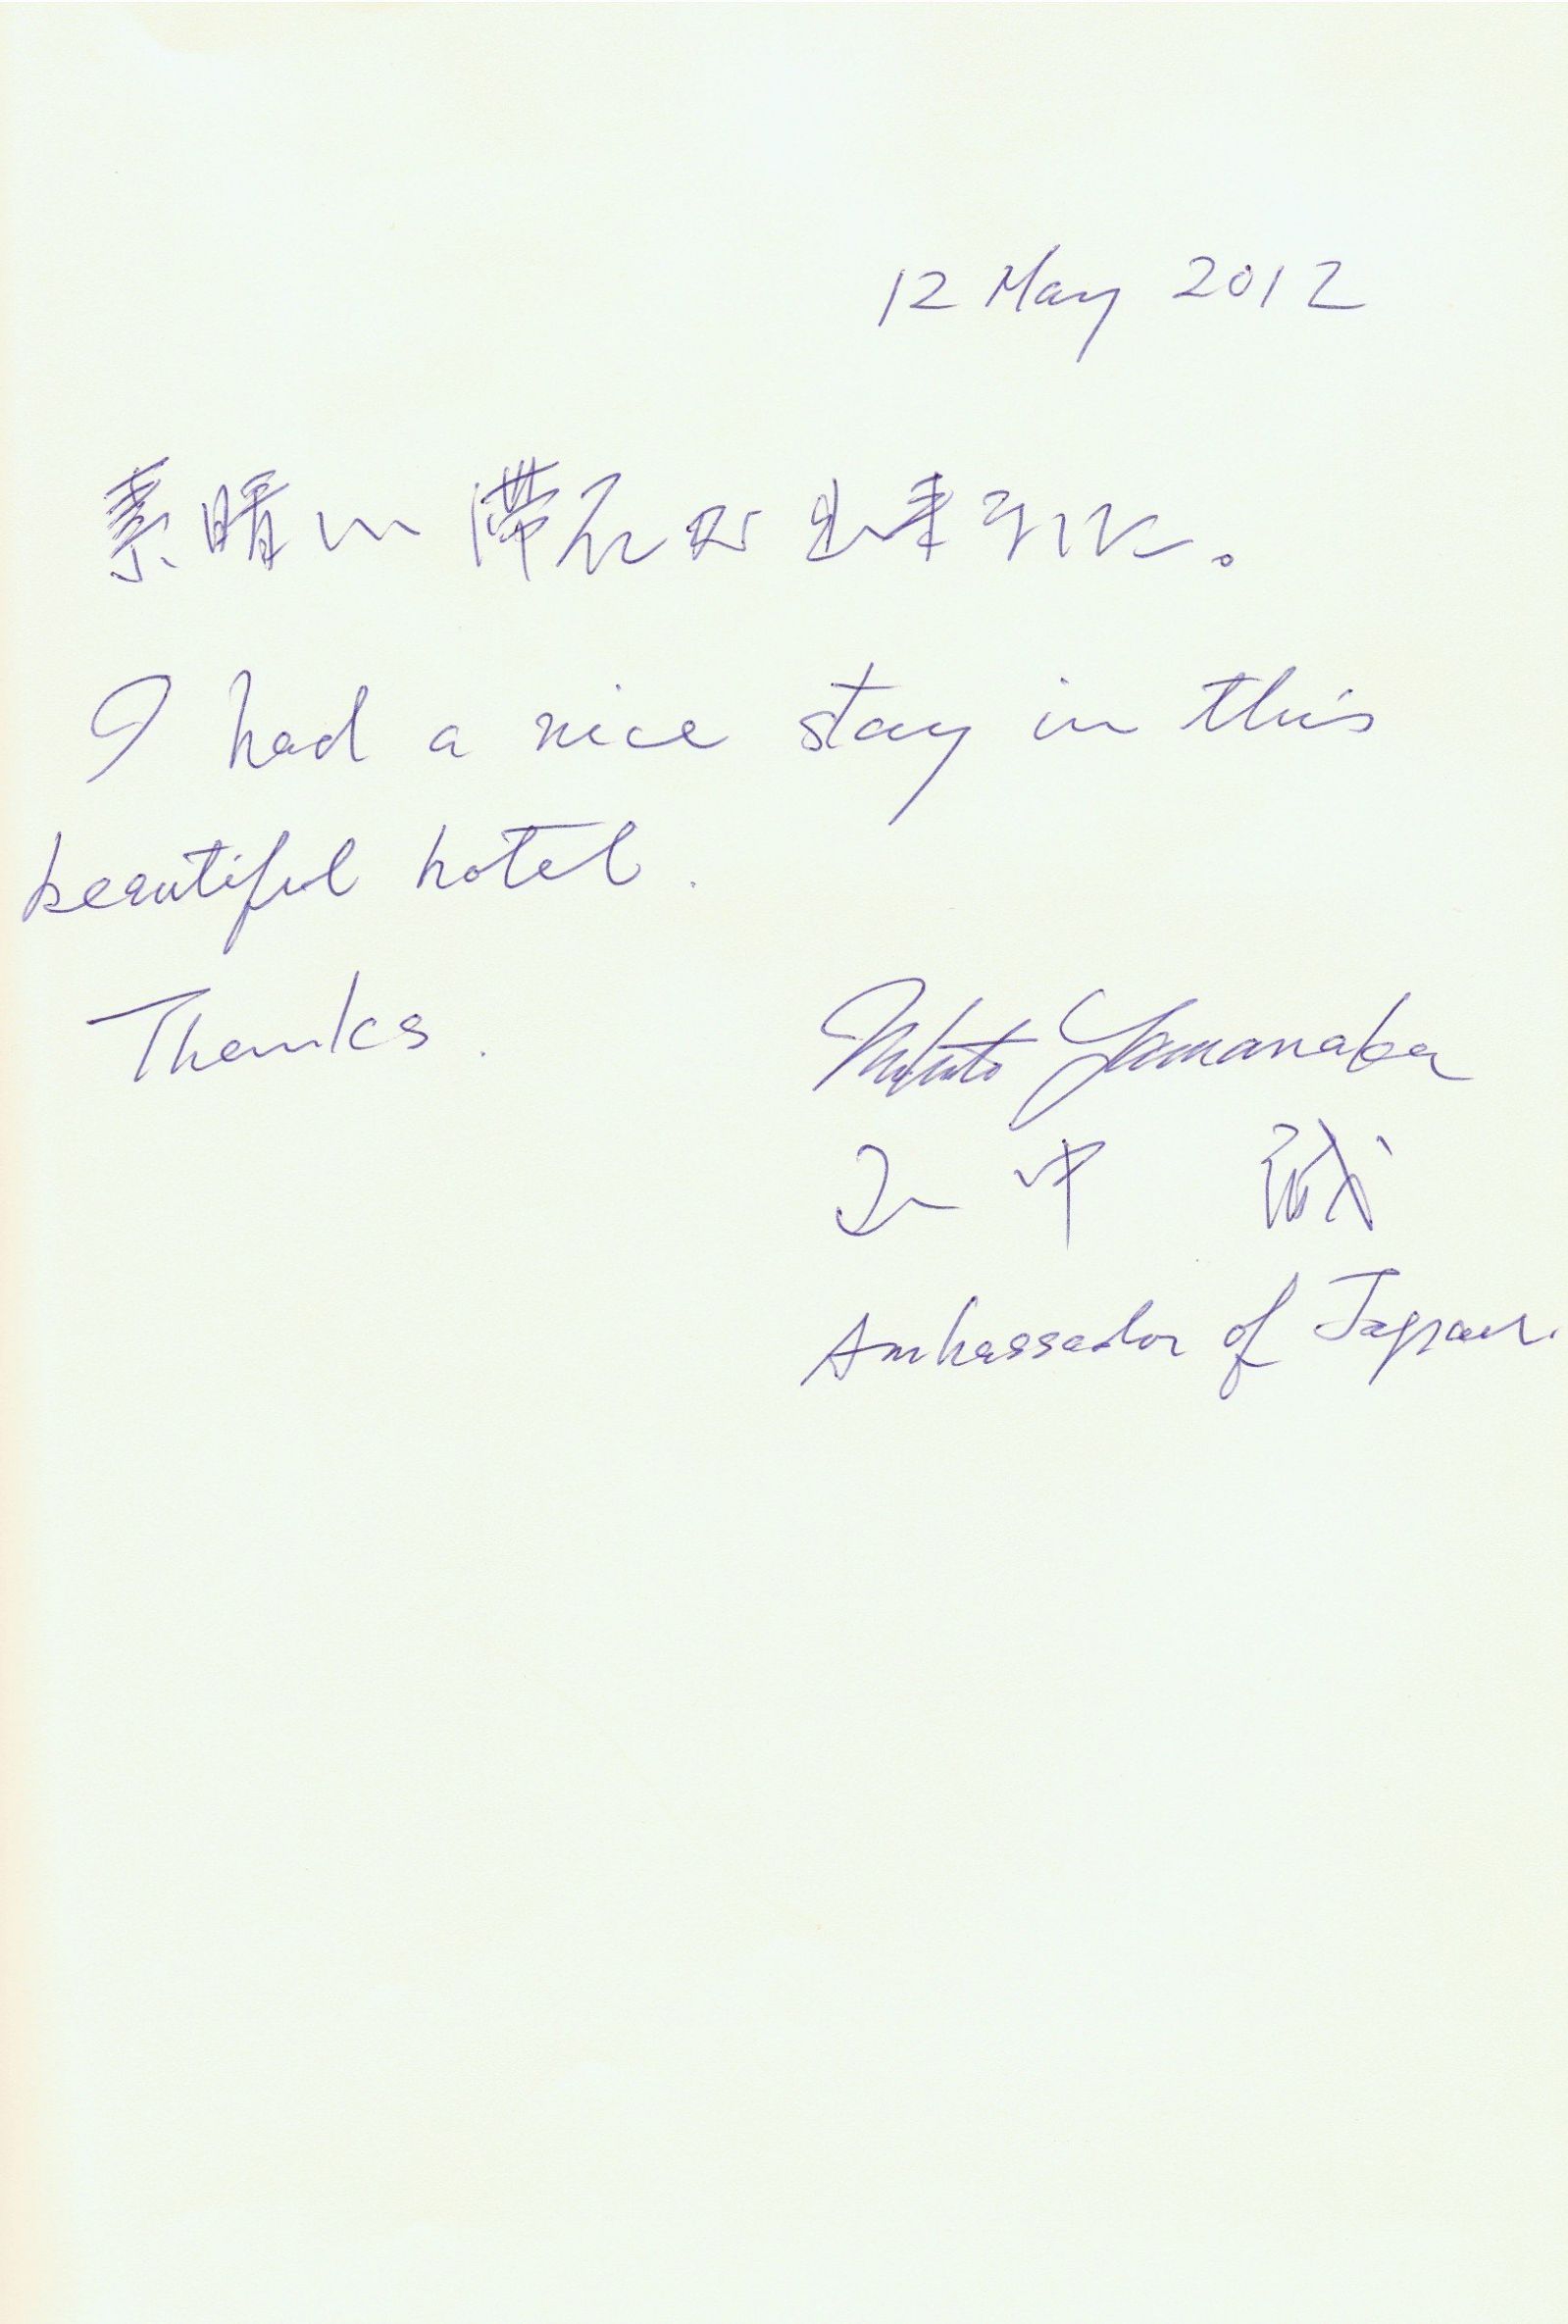 12 May 2012
素晴しい滞在が出来ました。
I had a nice stay in this
beautiful hotel.
Thanks.
Makoto Yamanaka
山中 誠
Ambassador of Japan.